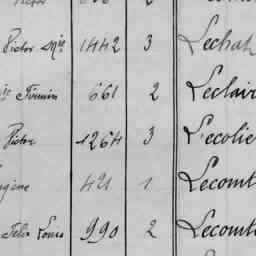 Victor Mie 1442 3 Lechat
Firmin 661 2 Leclair
Victor 1264 3 Lecolie
gène 421 1 Lecomt
Felix Louis 990 2 Lecomte